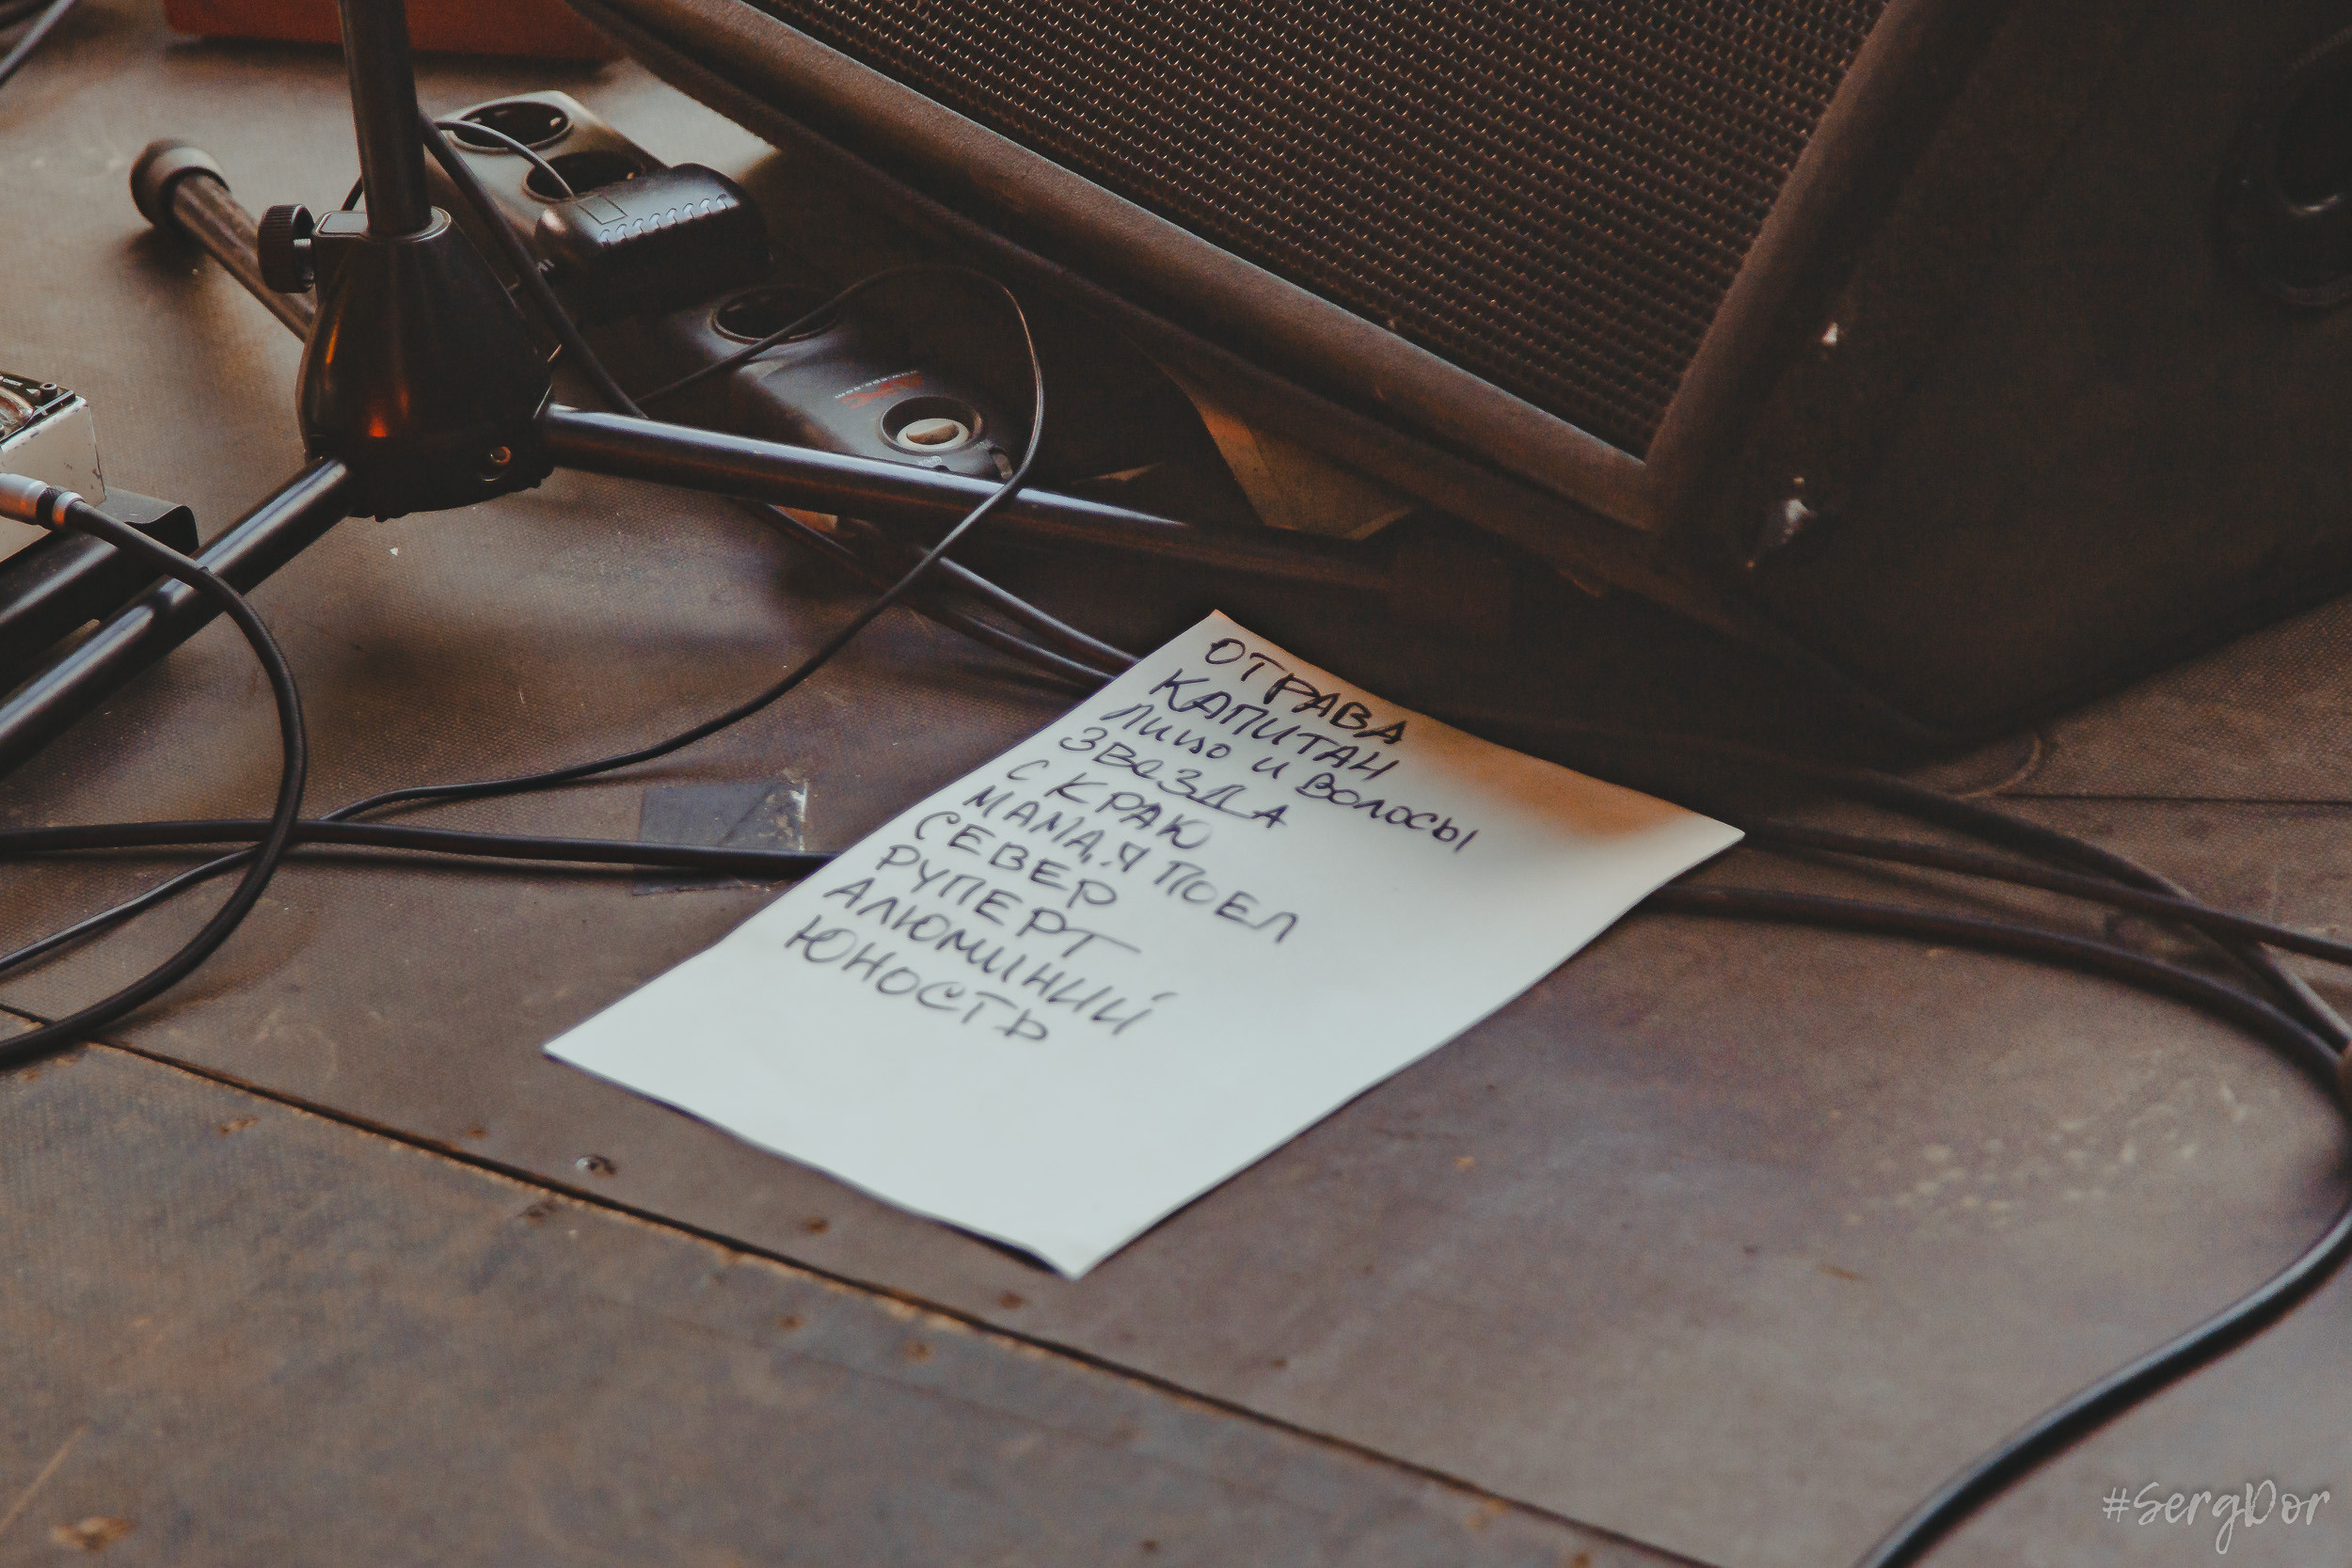 ОТРАВА
КАПИТАН
ЛИЦО И ВОЛОСЫ
ЗВЕЗДА
С КРАЮ
МАМА, Я ПОЕЛ
СЕВЕР
РУПЕРТ
АЛЮМИНИЙ
ЮНОСТЬ
#SergDor